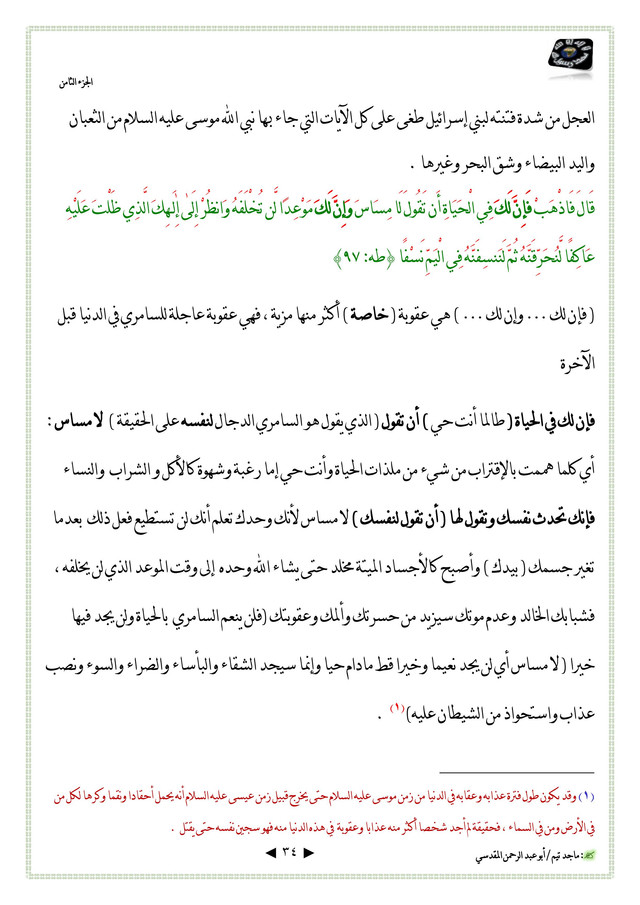 الجزء الثامن
العجل من شدة فتنته لبني إسرائيل طغى على كل الآيات التي جاء بها نبي الله موسى عليه السلام من الثعبان
واليد البيضاء وشق البحر وغيرها .
قَالَ فَاذْهَبْ فَإِنَّ لَكَ فِي الْحَيَاةِ أَن تَقُولَ لَا مِسَاسَ وَإِنَّ لَكَ مَوْعِدًا لَّن تُخْلَفَهُ وَانظُرْ إِلَىٰ إِلَٰهِكَ الَّذِي ظَلْتَ عَلَيْهِ
عَاكِفًا لَّنُحَرِّقَنَّهُ ثُمَّ لَنَنسِفَنَّهُ فِي الْيَمِّ نَسْفًا ﴿طه: ٩٧﴾
( فإن لك ... وإن لك ... ) هي عقوبة ( خاصة ) أكثر منها مزية ، فهي عقوبة عاجلة للسامري في الدنيا قبل
الآخرة
فإن لك في الحياة ( طالما أنت حي ) أن تقول ( الذي يقول هو السامري الدجال لنفسه على الحقيقة ) لا مساس :
أي كلما هممت بالإقتراب من شيء من ملذات الحياة وأنت حي إما رغبة وشهوة كالأكل و الشراب والنساء
فإنك تحدث نفسك وتقول لها ( أن تقول لنفسك ) لا مساس لأنك وحدك تعلم أنك لن تستطيع فعل ذلك بعدما
تغير جسمك ( بيدك ) وأصبح كالأجساد الميتة مخلد حتى يشاء الله وحده إلى وقت الموعد الذي لن يخلفه ،
فشبابك الخالد وعدم موتك سيزيد من حسرتك وألمك وعقوبتك (فلن ينعم السامري بالحياة ولن يجد فيها
خيرا ( لا مساس أي لن يجد نعيما وخيرا قط مادام حيا وإنما سيجد الشقاء والبأساء والضراء والسوء ونصب
عذاب واستحواذ من الشيطان عليه) (١) .
(١) وقد يكون طول فترة عذابه وعقابه في الدنيا من زمن موسى عليه السلام حتى يخرج قبيل زمن عيسى عليه السلام أنه يحمل أحقادا ونقما وكرها لكل من
في الأرض ومن في السماء ، فحقيقة لم أجد شخصا أكثر منه عذابا وعقوبة في هذه الدنيا منه فهو سجين نفسه حتى يقتل .
كتبه : ماجد تيم / أبو عبد الرحمن المقدسي
◄ ٣٤ ►